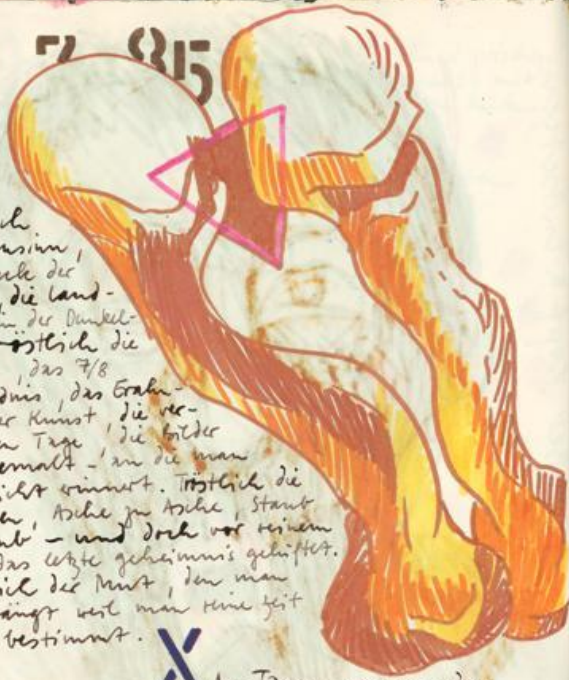 7 85
der
die Land-
in der Dunkel-
tröstlich die
das 7/8
das Erah-
er Kunst, die ver-
n Tage, die Bilder
gemalt - an die man
icht erinnert. Tröstlich die
en, Asche zu Asche, Staub
ub - und doch vor seinem
das letzte geheimnis gelüftet.
ich der Mut, den man
ängt weil man seine Zeit
bestimmt.
X